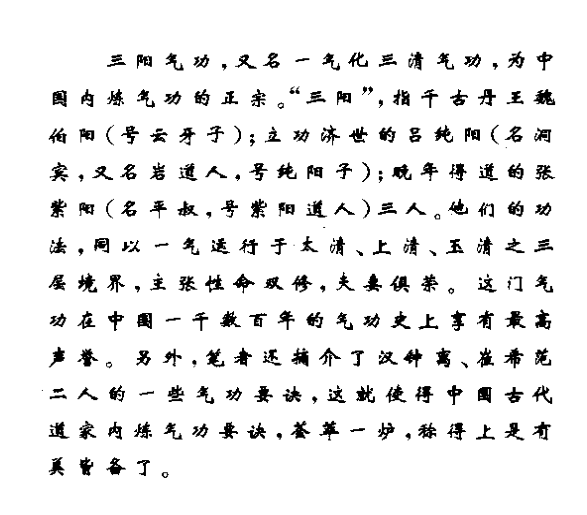 三阳气功，又名一气化三清气功，为中
国内炼气功的正宗。“三阳”，指千古丹王魏
伯阳（号云牙子）；立功济世的吕纯阳（名洞
宾，又名岩道人，号纯阳子）；晚年得道的张
紫阳（名平叔，号紫阳道人）三人。他们的功
法，同以一气运行于太清、上清、玉清之三
层境界，主张性命双修，夫妻俱荣。这门气
功在中国一千数百年的气功史上享有最高
声誉。另外，笔者还摘介了汉钟离、崔希范
二人的一些气功要诀，这就使得中国古代
道家内炼气功要诀，荟萃一炉，称得上是有
美皆备了。